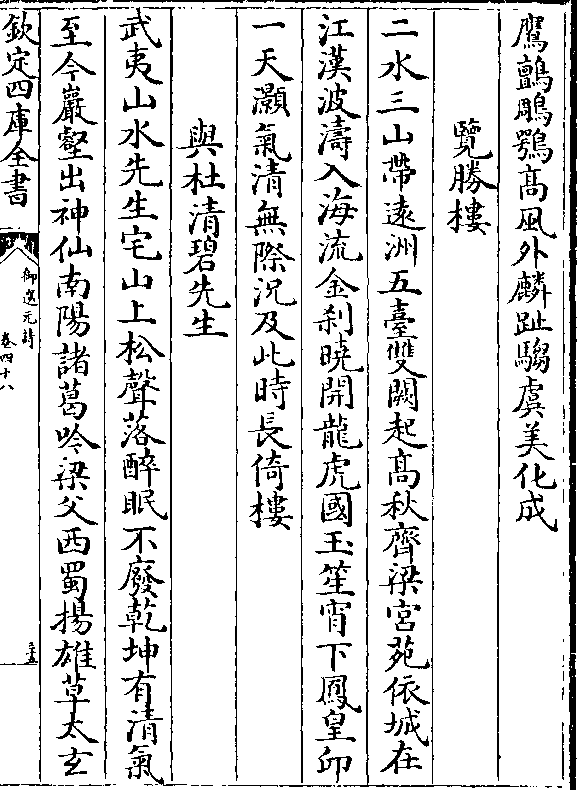 鷹鸇鵰鶚高風外麟趾騶虞美化成
覽勝樓
二水三山帶遠洲五臺雙闕起高秋齊梁宮苑依城在
江漢波濤入海流金刹曉開龍虎國玉笙宵下鳳皇丘
一天灝氣清無際況及此時長倚樓
與杜清碧先生
武夷山水先生宅山上松聲落醉眠不廢乾坤有清氣
至今巖壑出神仙南陽諸葛吟梁父西蜀揚雄草太玄
欽定四庫全書
御選元詩
卷四十八